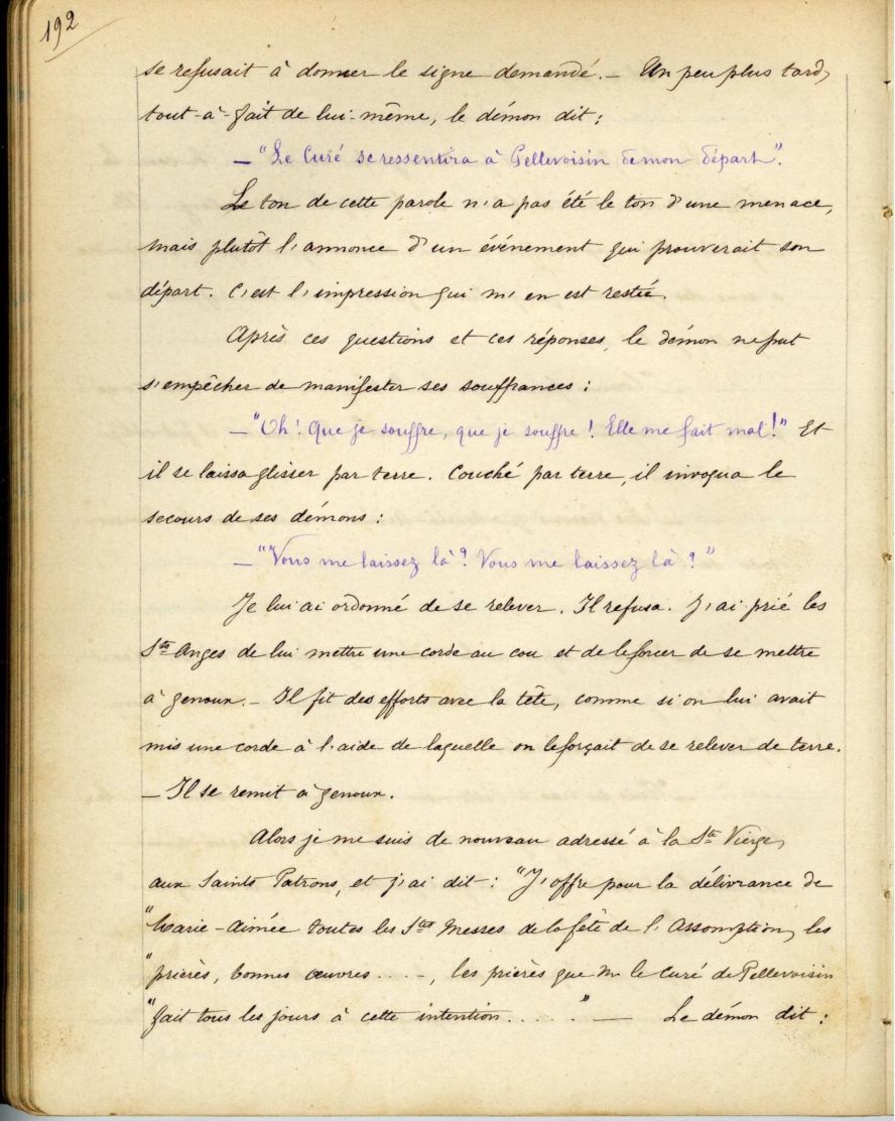 192
se refusait à donner le signe demandé. — Un peu plus tard,
tout-à-fait de lui-même, le démon dit :
— "Le Curé se ressentira à Pellevoisin de mon départ".
Le ton de cette parole n'a pas été le ton d'une menace,
mais plutôt l'annonce d'un événement qui prouverait son
départ. C'est l'impression qui m'en est restée.
Après ces questions et ces réponses, le démon ne put
s'empêcher de manifester ses souffrances :
— "Oh! Que je souffre, que je souffre ! Elle me fait mal!" Et
il se laissa glisser par terre. Couché par terre, il invoqua le
secours de ses démons :
— "Vous me laissez là ? Vous me laissez là ?"
Je lui ai ordonné de se relever. Il refusa. J'ai prié les
Sts Anges de lui mettre une corde au cou et de le forcer de se mettre
à genoux. — Il fit des efforts avec la tête, comme si on lui avait
mis une corde à l'aide de laquelle on le forçait de se relever de terre.
— Il se remit à genoux.
Alors je me suis de nouveau adressé à la Ste Vierge,
aux Saints Patrons, et j'ai dit : "J'offre pour la délivrance de
"Marie-Aimée toutes les Stes Messes de la fête de l'Assomption, les
"prières, bonnes œuvres . . . -, les prières que Mr le Curé de Pellevoisin
"fait tous les jours à cette intention . . . . ." — Le démon dit :